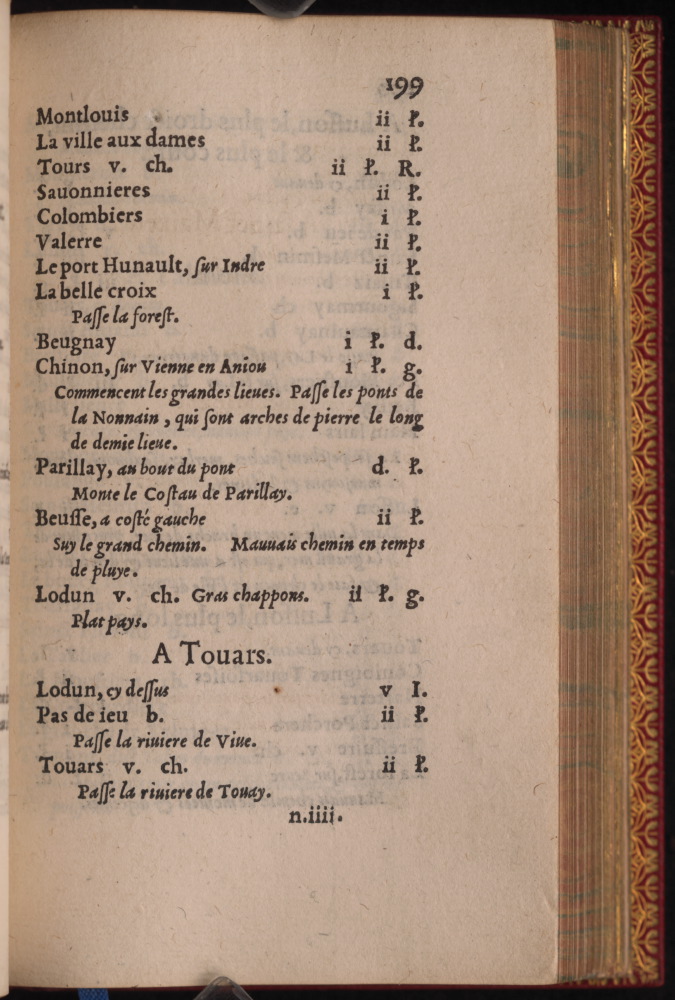 199
Montlouis ii ꝉ.
La ville aux dames ii ꝉ.
Tours v. ch. ii ꝉ. R.
Sauonnieres ii ꝉ.
Colombiers i ꝉ.
Valerre ii ꝉ.
Le port Hunault, ſur Indre ii ꝉ.
La belle croix i ꝉ.
Paſſe la foreſt.
Beugnay i ꝉ. d.
Chinon, ſur Vienne en Aniou i ꝉ. g.
Commencent les grandes lieues. Paſſe les ponts de
la Nonnain , qui ſont arches de pierre le long
de demie lieue.
Parillay, au bout du pont d. ꝉ.
Monte le Coſtau de Parillay.
Beuſſe, a coſté gauche ii ꝉ.
Suy le grand chemin. Mauuais chemin en temps
de pluye.
Lodun v. ch. Gras chappons. ii ꝉ. g.
Plat pays.
A Touars.
Lodun, cy deſſus v I.
Pas de ieu b. ii ꝉ.
Paſſe la riuiere de Viue.
Touars v. ch. ii ꝉ.
Paſſe la riuiere de Touay.
n.iiii.